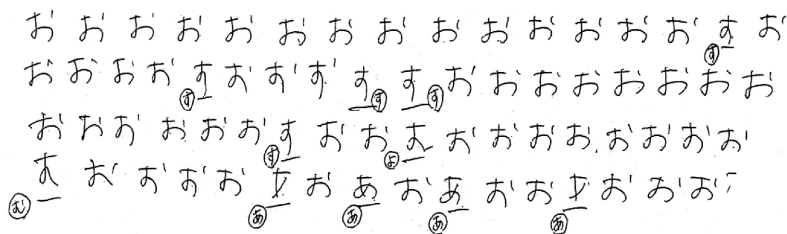 お お お お お お お お お お お お お お す お
す
お お お お す お す す す す お お お お お お お お
す す す
お お お お お お す お お よ お お お お お お お お
す よ
む お お お お あ お あ お あ お お あ お お お
む あ あ あ あ